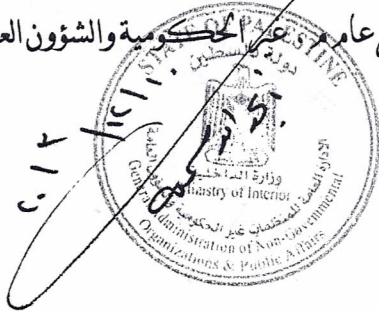 عام غير الحكومية والشؤون
STATE OF PALESTINE
دولة فلسطين
وزارة الداخلية
Ministry of Interior
الإدارة العامة للمنظمات غير الحكومية
General Administration of Non-Governmental
Organizations & Public Affairs